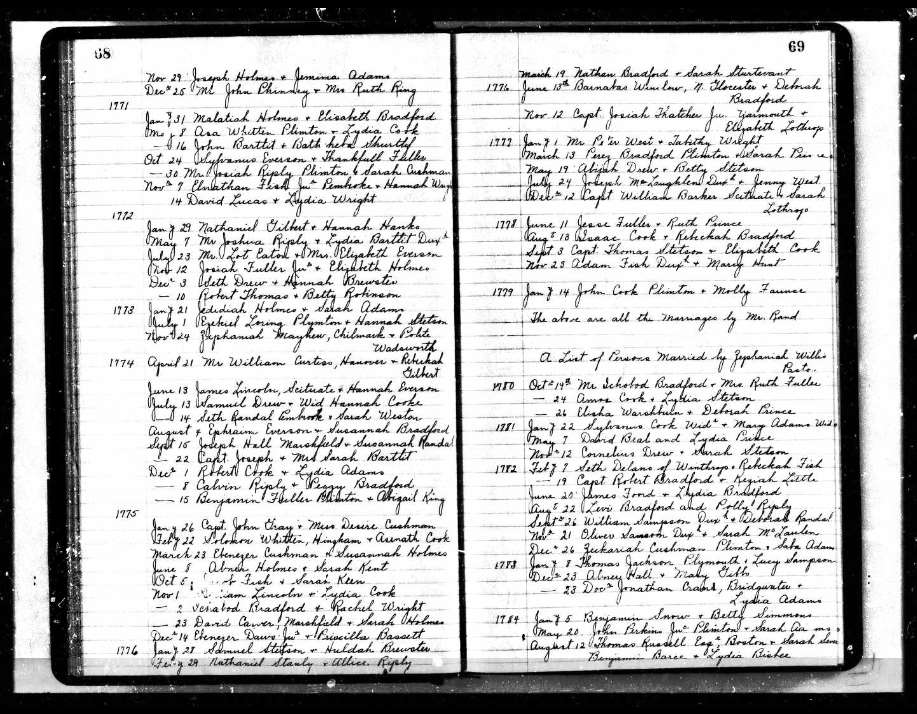 68
Nov 29 Joseph Holmes + Jemima Adams
Decr 25 Mr John Phinney + Mrs Ruth Ring
1771
Jany 31 Malatiah Holmes + Elisabeth Bradford
8 Asa Whitten Plimton + Lydia Cook
— 16 John Bartlet + Shurtlef
Oct 24 Sylvanus Everson + Thankfull Fuller
— 30 Mr Josiah Riply Plimton + Sarah Cushman
Novr 7 Elnathan Fish Junr Pembroke + Hannah
14 David Lucas + Lydia Wright
1772
Jany 29 Nathaniel Gilbert + Hannah Hanks
May 7 Mr Joshua Riply + Lydia Bartlet Duxr
July 23 Mr Lot Eaton + Mrs Elizabeth Everson
Nov 12 Josiah Fuller Junr + Elizabeth Holmes
Decr 3 Seth Drew + Hannah Brewster
— 10 Robert Thomas + Betty Robinson
1773 Jany 21 Jedidiah Holmes + Sarah Adams
July 1 Ezekiel Loring Plymton + Hannah Stetson
Nov 24 Zephaniah Mayhew, Chilmark + Polite
Wadsworth
1774 April 21 Mr William Curtiss, Hanover + Rebeckah
Gilbert
June 13 James Lincoln, Scituate + Hannah Everson
July 13 Samuel Drew + Wid Hannah Cooke
— 14 Seth Randal Pembrook + Sarah Weston
August 4 Ephraim Everson + Susannah Bradford
Sept 15 Joseph Hall Marshfield + Susannah Randal
— 22 Capt. Joseph + Mrs Sarah Bartlet
Decr 1 Robert Cook + Lydia Adams
— 8 Calvin Riply + Peggy Bradford
— 15 Benjamin Fuller Plimton + Abigail King
1775
Jany 26 Capt. John Gray + Miss Desire Cushman
Feby 22 Solomon Whitten, Hingham + Asenath Cook
March 23 Ebenezer Cushman + Susannah Holmes
June 8 Abner Holmes + Sarah Kent
Oct 5 Fish + Sarah Keen
Nov 1 Lincoln + Lydia Cook
— 2 Ichabod Bradford + Rachel Wright
— 23 David Carver Marshfield + Sarah Holmes
Decr 14 Ebenezer Daws Junr + Priscilla Bassett
1776 Jany 28 Samuel Stetson + Huldah Brewster
Feby 29 Nathaniel Stanly + Allice Riply
69
March 19 Nathan Bradford + Sarah Sturtevant
1776 June 13th Barnabas Winslow, N. Glocester + Deborah
Bradford
Nov 12 Capt. Josiah Thatcher Ju. Yarmouth +
Elizabeth Lothrop
1777 Jany 1 Mr Peter West + Tabethy Wright
March 13 Perez Bradford Plimton + Sarah
May 19 Abijah Drew + Betty Stetson
July 24 Joseph McLaughlen Duxr + Jenny West
Decr 12 Capt William Barker Scituate + Sarah
Lothrop
1778 June 11 Jesse Fuller + Ruth Prince
Augt 13 Isaac Cook + Rebeckah Bradford
Sept 3 Capt. Thomas Stetson + Elizabeth Cook
Nov 23 Adam Fish Duxr + Marcy Hunt
1779 Jany 14 John Cook Plimton + Molly Faunce
The above are all the Marriages by Mr. Rand
A List of Persons Married by Zephaniah Willis
Pasto.
1780 Octr 19th Mr Ichobod Bradford + Mrs Ruth Fuller
— 24 Amos Cook + Lydia Stetson
— 26 Elisha Washburn + Deborah Prince
1781 Jany 22 Sylvanus Cook Wid + Mary Adams Wid
May 7 David Beal and Lydia Prince
Novr 12 Cornelius Drew + Sarah Stetson
1782 Feby 7 Seth Delano of Winthrop + Rebekah Fish
— 19 Capt Robert Bradford + Keziah Little
June 20 James Foord + Lydia Bradford
Augt 22 Levi Bradford and Polly Riply
Septr 26 William Sampson Duxr + Deborah Randal
Novr 21 Oliver Samson Duxr + Sarah McLauslen
Decr 26 Zachariah Cushman Plimton + Saba Adam
1783 Jany 8 Thomas Jackson Plymouth + Lucy Sampson
Decr 23 Abner Hall + Mary Gibbs
— 23 Docr Jonathan Crane, Bridgwater +
Lydia Adams
1784 Jany 5 Benjamin Snow + Betty Simmons
May 20 John Perkins Junr Plimton + Sarah
August 12 Thomas Russell Esqr, Boston + Sarah
Benjamin Barce + Lydia Bisbee